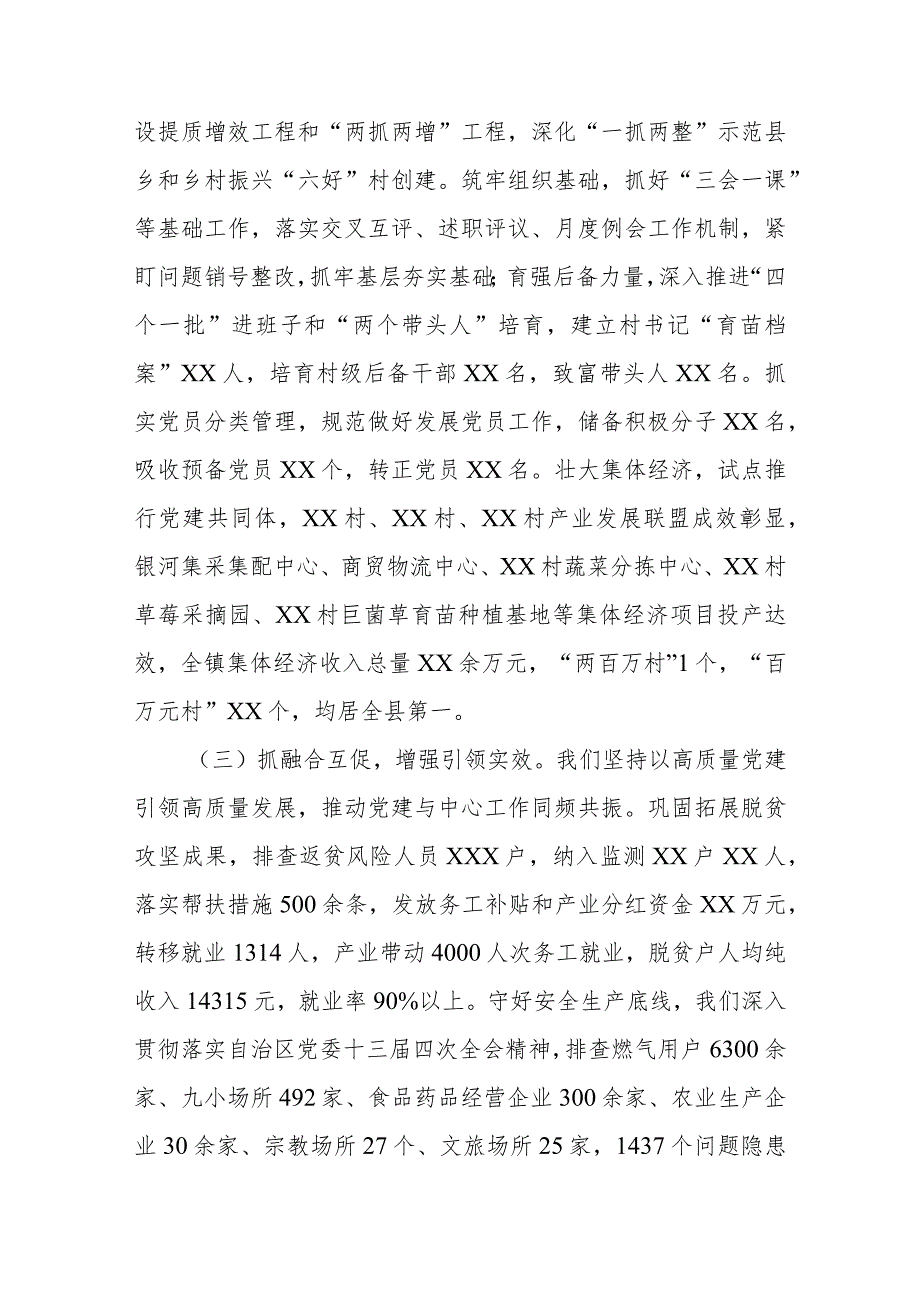 设提质增效工程和“两抓两增”工程，深化“一抓两整”示范县
乡和乡村振兴“六好”村创建。筑牢组织基础，抓好“三会一课”
等基础工作，落实交叉互评、述职评议、月度例会工作机制，紧
盯问题销号整改,抓牢基层夯实基础;育强后备力量,深入推进“四
个一批”进班子和“两个带头人”培育，建立村书记“育苗档
案”XX 人，培育村级后备干部 XX 名，致富带头人 XX 名。抓
实党员分类管理，规范做好发展党员工作，储备积极分子 XX 名，
吸收预备党员 XX 个，转正党员 XX 名。壮大集体经济，试点推
行党建共同体，XX 村、XX 村、XX 村产业发展联盟成效彰显，
银河集采集配中心、商贸物流中心、XX 村蔬菜分拣中心、XX 村
草莓采摘园、XX 村巨菌草育苗种植基地等集体经济项目投产达
效，全镇集体经济收入总量 XX 余万元，“两百万村”1 个，“百
万元村”XX 个，均居全县第一。
（三）抓融合互促，增强引领实效。我们坚持以高质量党建
引领高质量发展，推动党建与中心工作同频共振。巩固拓展脱贫
攻坚成果，排查返贫风险人员 XXX 户，纳入监测 XX 户 XX 人，
落实帮扶措施 500 余条，发放务工补贴和产业分红资金 XX 万元，
转移就业 1314 人，产业带动 4000 人次务工就业，脱贫户人均纯
收入 14315 元，就业率 90%以上。守好安全生产底线，我们深入
贯彻落实自治区党委十三届四次全会精神,排查燃气用户 6300 余
家、九小场所 492 家、食品药品经营企业 300 余家、农业生产企
业 30 余家、宗教场所 27 个、文旅场所 25 家，1437 个问题隐患